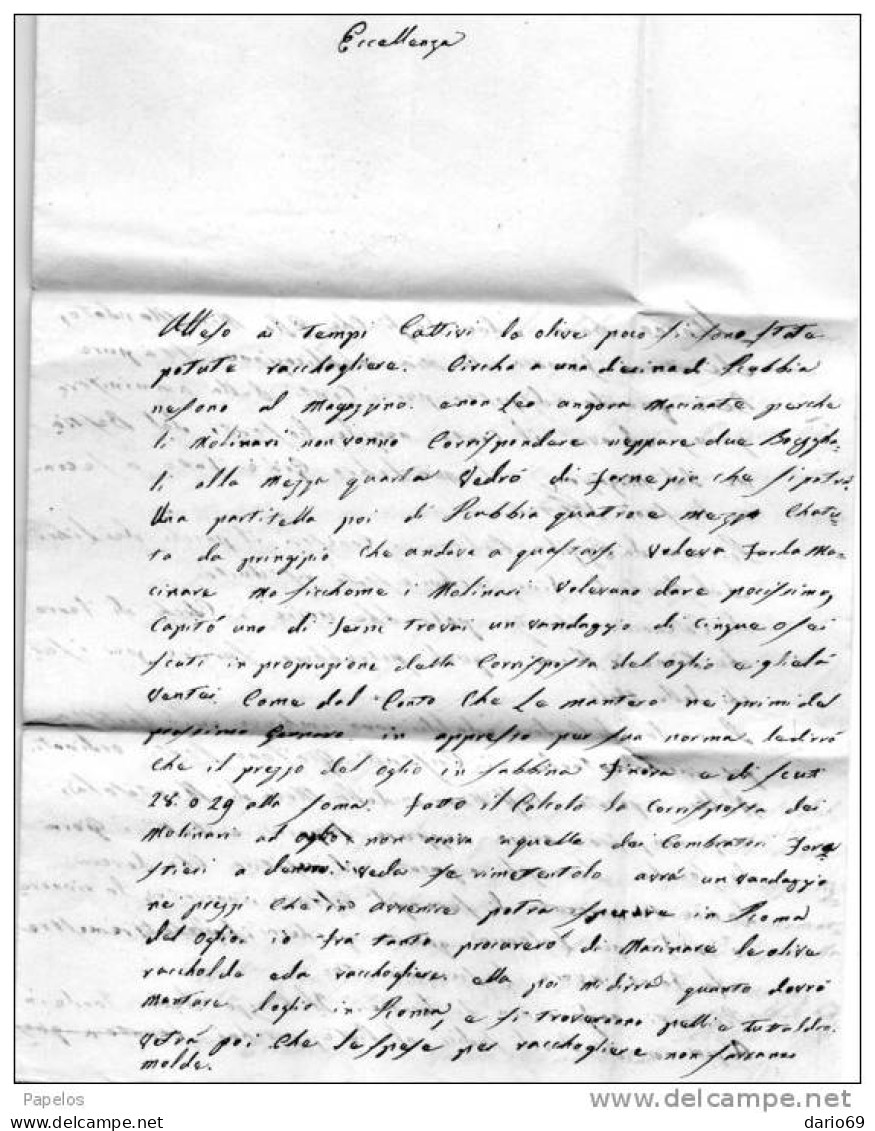 Eccellenza
Atteso ai tempi Cattivi le olive poco si sono state
potute racchogliere. Circha a una diecina di Rubbia
ne sono al Magazzino. e non leo angora Macinate perche
li Molinari non vonno Corrispondere neppure due Bogcha-
li alla Mezza quarta Vedrò di farne più che si potrà
Una partitella poi di Rubbia quattro e mezzo Chadu-
ta da principio che andava a guastarsi voleva farla Ma=
cinare Ma sicchome i Molinari volevano dare pocissimo,
Capitò uno di Terni trovai un vandaggio di cinque o sei
scuti in propruzione della Corrisposta del oglio e glielà
ventei. Come dal Conto che Le mantero nei primi del
prossimo Gennaro. in appresso per sua norma le dirò
che il prezzo del oglio in Sabbina finora e di scuti
28. o 29 alla soma. fatto il Calcolo la Corrisposta dei
Molinari ad oglio non arriva a quella dei Combratori fora
stieri a denaro. veda se rimetentolo avrà un vandaggio
nei prezzi che in avvenire potrà sperare in Roma
del oglio. io frà tanto procurerò di Macinare le olive
raccholde e da racchogliere. ella poi mi dirrà quanto dovrò
mantare l oglio in Roma, e si troveranno pelli e tuttaldro.
vetrà poi che le spese per racchogliere non saranno
molde.
Papelos
www.delcampe.net
dario69